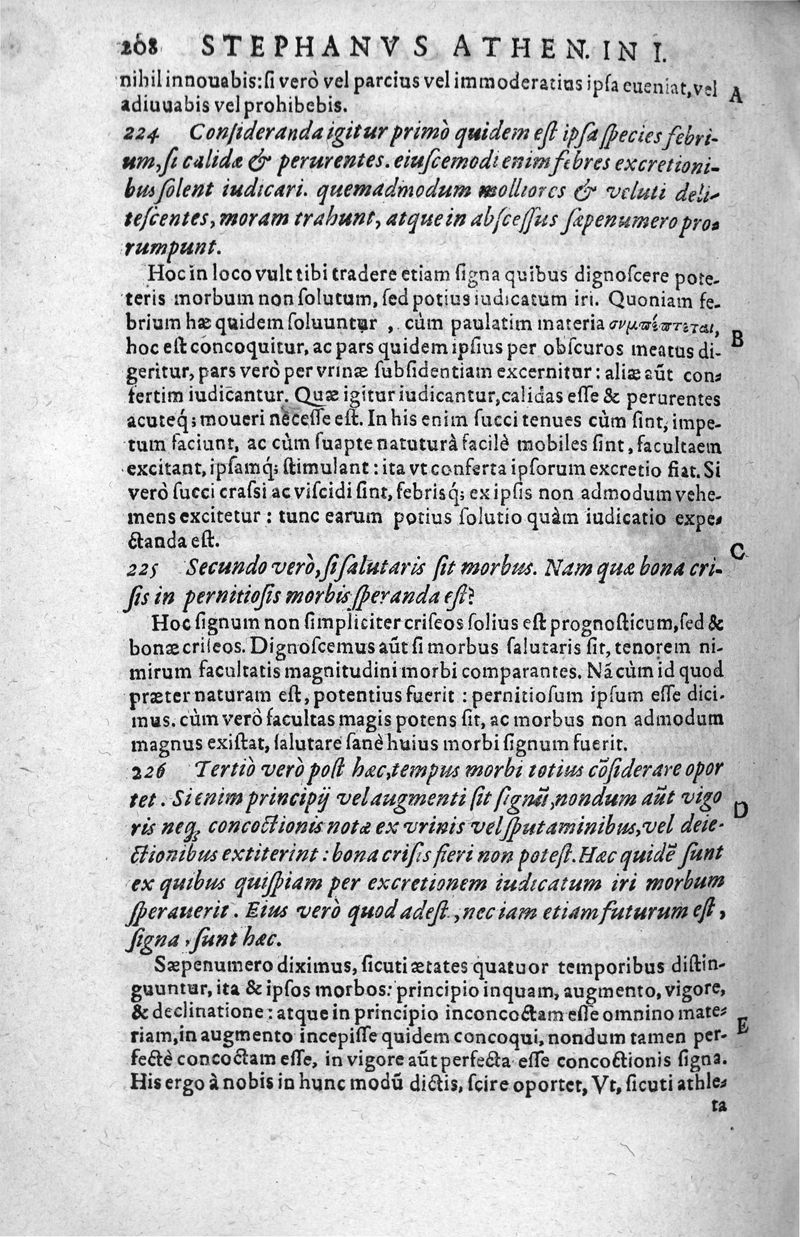 208 STEPHANVS ATHEN. IN I.
nihil innouabis: ſi verò vel parcius vel immoderatius ipſa eueniat, vel
adiuuabis vel prohibebis.
A
224 Conſideranda igitur primò quidem eſt ipſa ſpecies febri-
um, ſi calidæ & perurentes. eiuſcemodi enim febres excretioni-
bus ſolent iudicari. quemadmodum molliores & veluti deli-
teſcentes, moram trahunt, atque in abſceſſus ſæpenumero pro-
rumpunt.
Hoc in loco vult tibi tradere etiam ſigna quibus dignoſcere pote-
teris morbum non ſolutum, ſed potius iudicatum iri. Quoniam fe-
brium hæ quidem ſoluuntur , cùm paulatim materia συμπέπτεται,
B
hoc eſt concoquitur, ac pars quidem ipſius per obſcuros meatus di-
geritur, pars verò per vrinæ ſubſidentiam excernitur: aliæ aūt con-
fertim iudicantur. Quæ igitur iudicantur, calidas eſſe & perurentes
acuteq́; moueri neceſſe eſt. In his enim ſucci tenues cùm ſint, impe-
tum faciunt, ac cùm ſuapte natuturâ facilè mobiles ſint, facultaem
excitant, ipſamq́; ſtimulant: ita vt conferta ipſorum excretio fiat. Si
verò ſucci craſsi ac viſcidi ſint, febrisq́; ex ipſis non admodum vehe-
mens excitetur : tunc earum potius ſolutio quàm iudicatio expe-
ctanda eſt.
C
225 Secundo verò, ſi ſalutaris ſit morbus. Nam quæ bona cri-
ſis in pernitioſis morbis ſperanda eſt?
Hoc ſignum non ſimpliciter criſeos ſolius eſt prognoſticum, ſed &
bonæ criſeos. Dignoſcemus aūt ſi morbus ſalutaris ſit, tenorem ni-
mirum facultatis magnitudini morbi comparantes. Nā cùm id quod
præter naturam eſt, potentius fuerit : pernitioſum ipſum eſſe dici-
mus. cùm verò facultas magis potens ſit, ac morbus non admodum
magnus exiſtat, ſalutare ſanè huius morbi ſignum fuerit.
226 Tertiò verò poſt hæc, tempus morbi totius cōſiderare opor
tet. Si enim principij vel augmenti ſit ſignū, nondum aūt vigo
D
ris neq; concoctionis notæ ex vrinis vel ſputaminibus, vel deie-
ctionibus extiterint: bona criſis fieri non poteſt. Hæc quidē ſunt
ex quibus quiſpiam per excretionem iudicatum iri morbum
ſperauerit. Eius verò quod adeſt, nec iam etiam futurum eſt,
ſigna ſunt hæc.
Sæpenumero diximus, ſicuti ætates quatuor temporibus diſtin-
guuntur, ita & ipſos morbos: principio inquam, augmento, vigore,
& declinatione: atque in principio inconcoctam eſſe omnino mate-
E
riam, in augmento incepiſſe quidem concoqui, nondum tamen per-
fectè concoctam eſſe, in vigore aūt perfecta eſſe concoctionis ſigna.
His ergo à nobis in hunc modū dictis, ſcire oportet, Vt, ſicuti athle-
ta